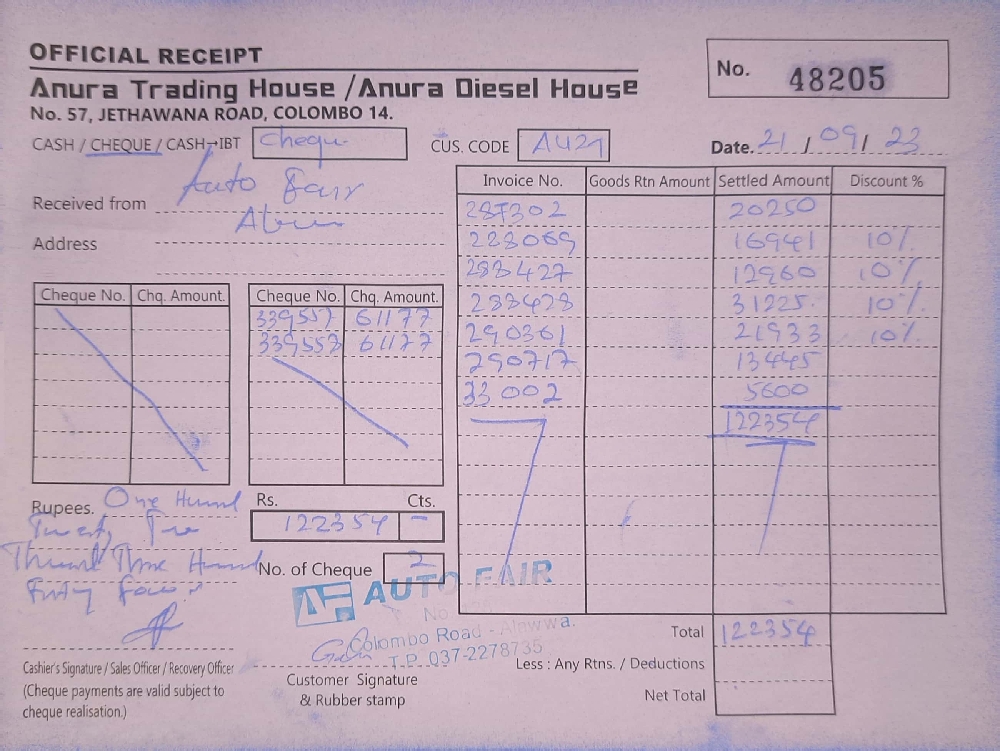 OFFICIAL RECEIPT
Anura Trading House / Anura Diesel House
No. 57, JETHAWANA ROAD, COLOMBO 14.
No. 48205
CASH / CHEQUE / CASH-IBT Cheque
CUS. CODE AU21
Date. 21 / 09 / 23
Received from Auto Fair
Address
Cheque No. Chq. Amount.
Cheque No. Chq. Amount.
339557 61177
339558 61177
Invoice No. Goods Rtn Amount Settled Amount Discount %
287302 20250
288069 16941 10%
288427 12960 10%
288428 31225 10%
290361 21933 10%
290717 13445
33002 5600
122354
Rupees. One Hund
Twenty Two
Thousand Three Hund
Fifty Four
Rs. Cts.
122354 -
No. of Cheque 2
AF AUTO FAIR
No.
Colombo Road - Alawwa.
T.P. 037-2278735
Total 122354
Less : Any Rtns. / Deductions
Net Total
Cashier's Signature / Sales Officer / Recovery Officer
(Cheque payments are valid subject to
cheque realisation.)
Customer Signature
& Rubber stamp